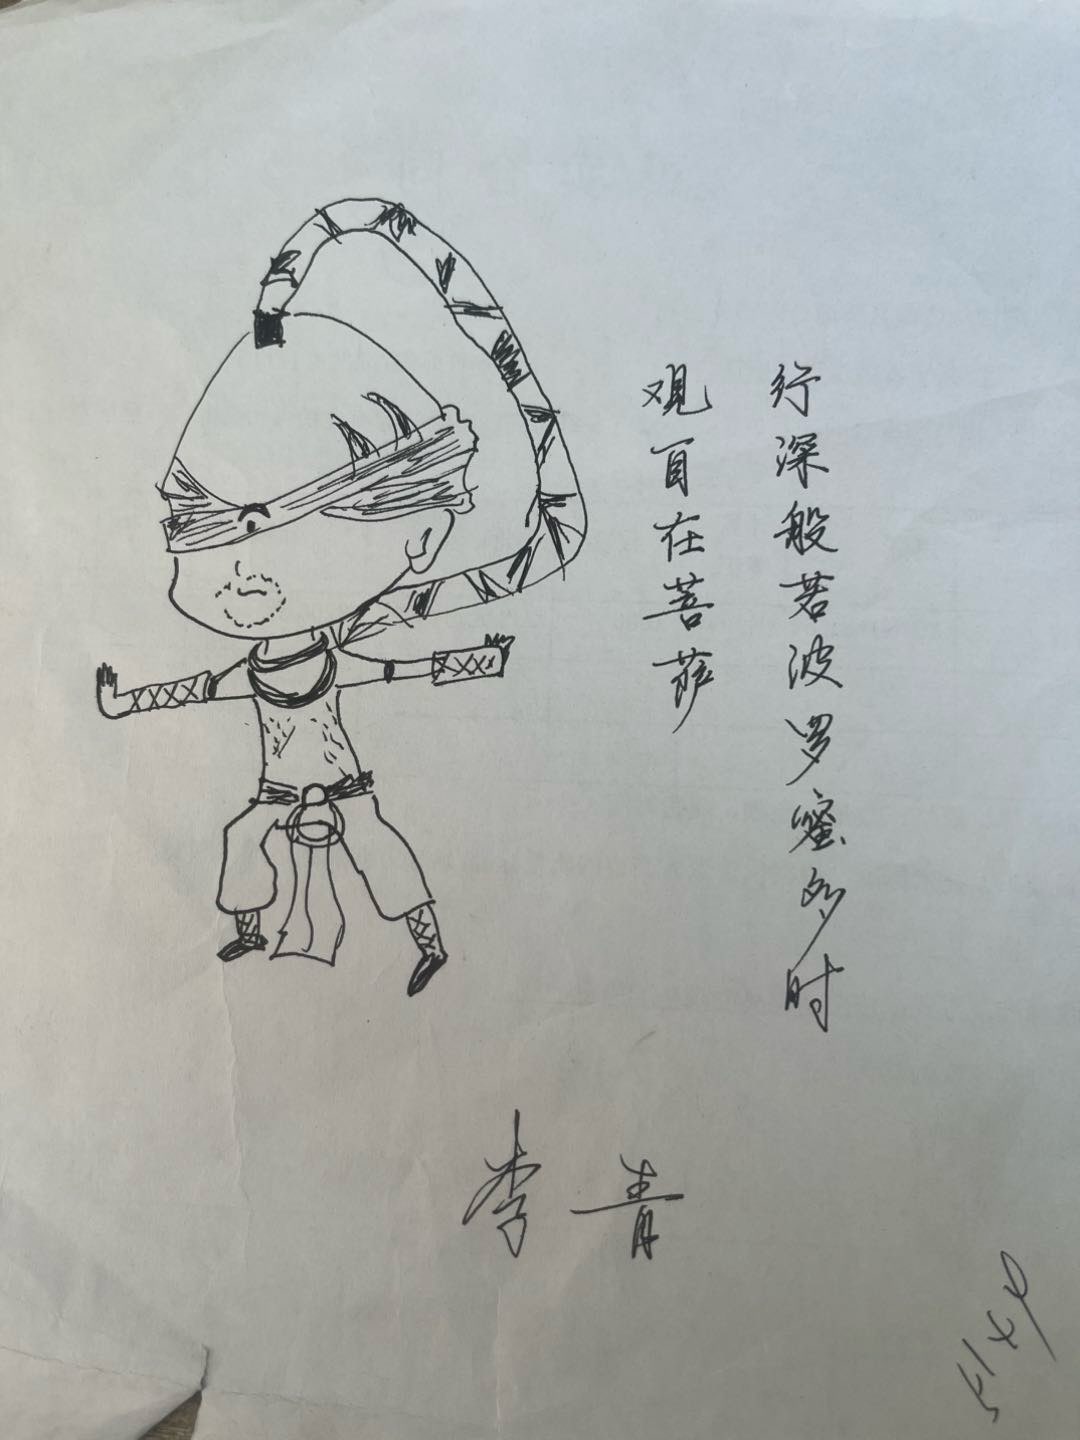 观自在菩萨
行深般若波罗蜜多时
李青